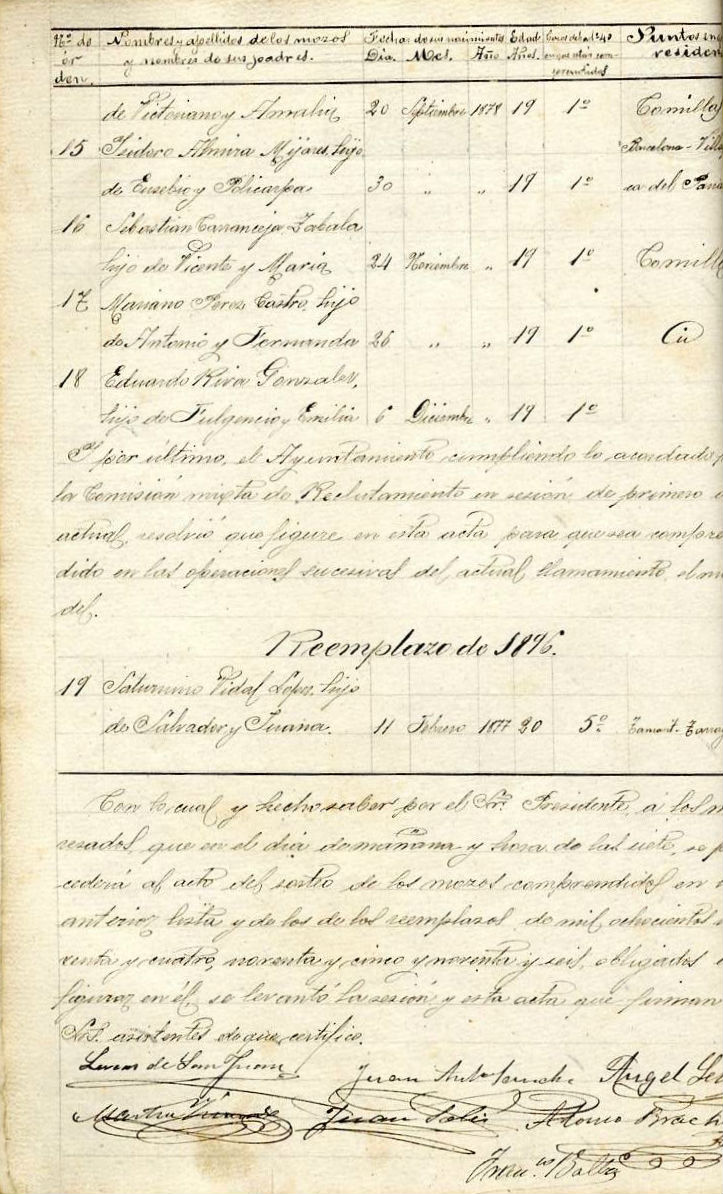 Nº de Nombres y apellidos de los mozos Fecha de sus nacimientos Edad Casos del artº 40 Puntos en q
ór y nombres de sus padres. Dia. Mes. Año Años. en que están com residen
den. prendidos
de Victoriano y Amalia 20 Septiembre 1878 19 1º Comillas
15 Isidoro Almira Mijares, hijo Barcelona - Villa
de Eusebio y Policarpa 30 " " 19 1º ca del Pana
16 Sebastian Carranceja Zabala
hijo de Vicente y Maria 24 Noviembre " 19 1º Comilla
17 Mariano Perez Castro, hijo
de Antonio y Fernanda 26 " " 19 1º
18 Eduardo Riva Gonzalez,
hijo de Fulgencio y Emilia 6 Diciembre " 19 1º
Y por ultimo, el Ayuntamiento cumpliendo lo acordado p
la Comisión mixta de Reclutamiento en sesión de primero d
actual, resolvió que figure en esta acta para que sea compren
dido en las operaciones sucesivas del actual llamamiento, el m
del.
Reemplazo de 1896.
19 Saturnino Vidal Lopez, hijo
de Salvador y Juana. 11 Febrero 1877 20 5º
Con lo cual y hecho saber por el Sr. Presidente, á los
resados, que en el dia de mañana y hora de las siete, se p
cederá al acto del sorteo de los mozos comprendidos en
anterior lista y de los de los reemplazos de mil ochocientos
venta y cuatro, noventa y cinco y noventa y seis, obligados
figurar en él, se levantó la sesión y esta acta que firman
Srs. asistentes de que certifico.
Lucas de San Juan Juan Antº Sanchez Angel
Juan Solis Alonso
Franco